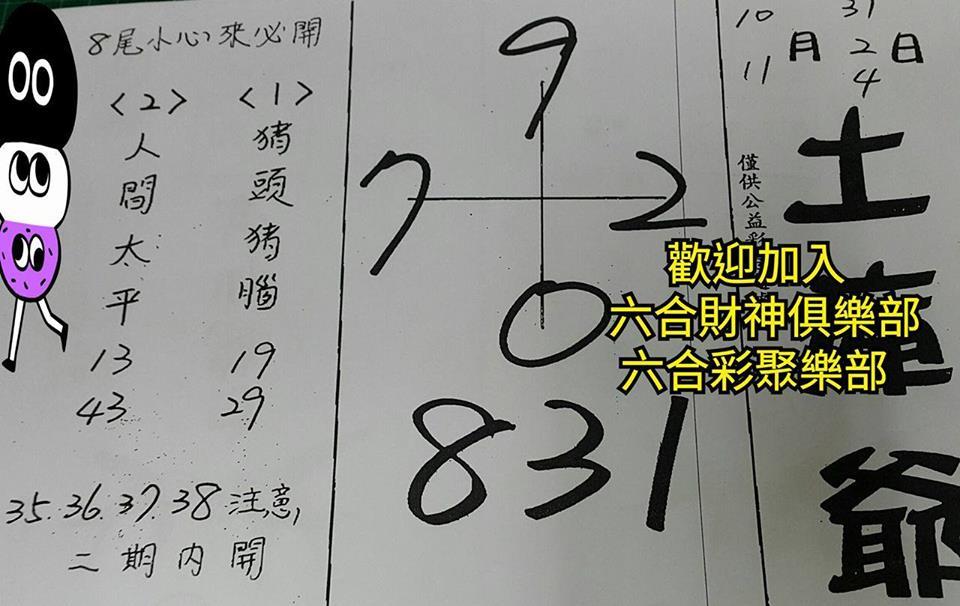 10 31
月 2 日
11 4
土
爺
僅供公益彩
9
7 2
0
831
歡迎加入
六合財神俱樂部
六合彩聚樂部
8尾小心來必開
<1>
猪頭猪腦
19
29
<2>
人間太平
13
43
35.36.37.38注意,
二期內開